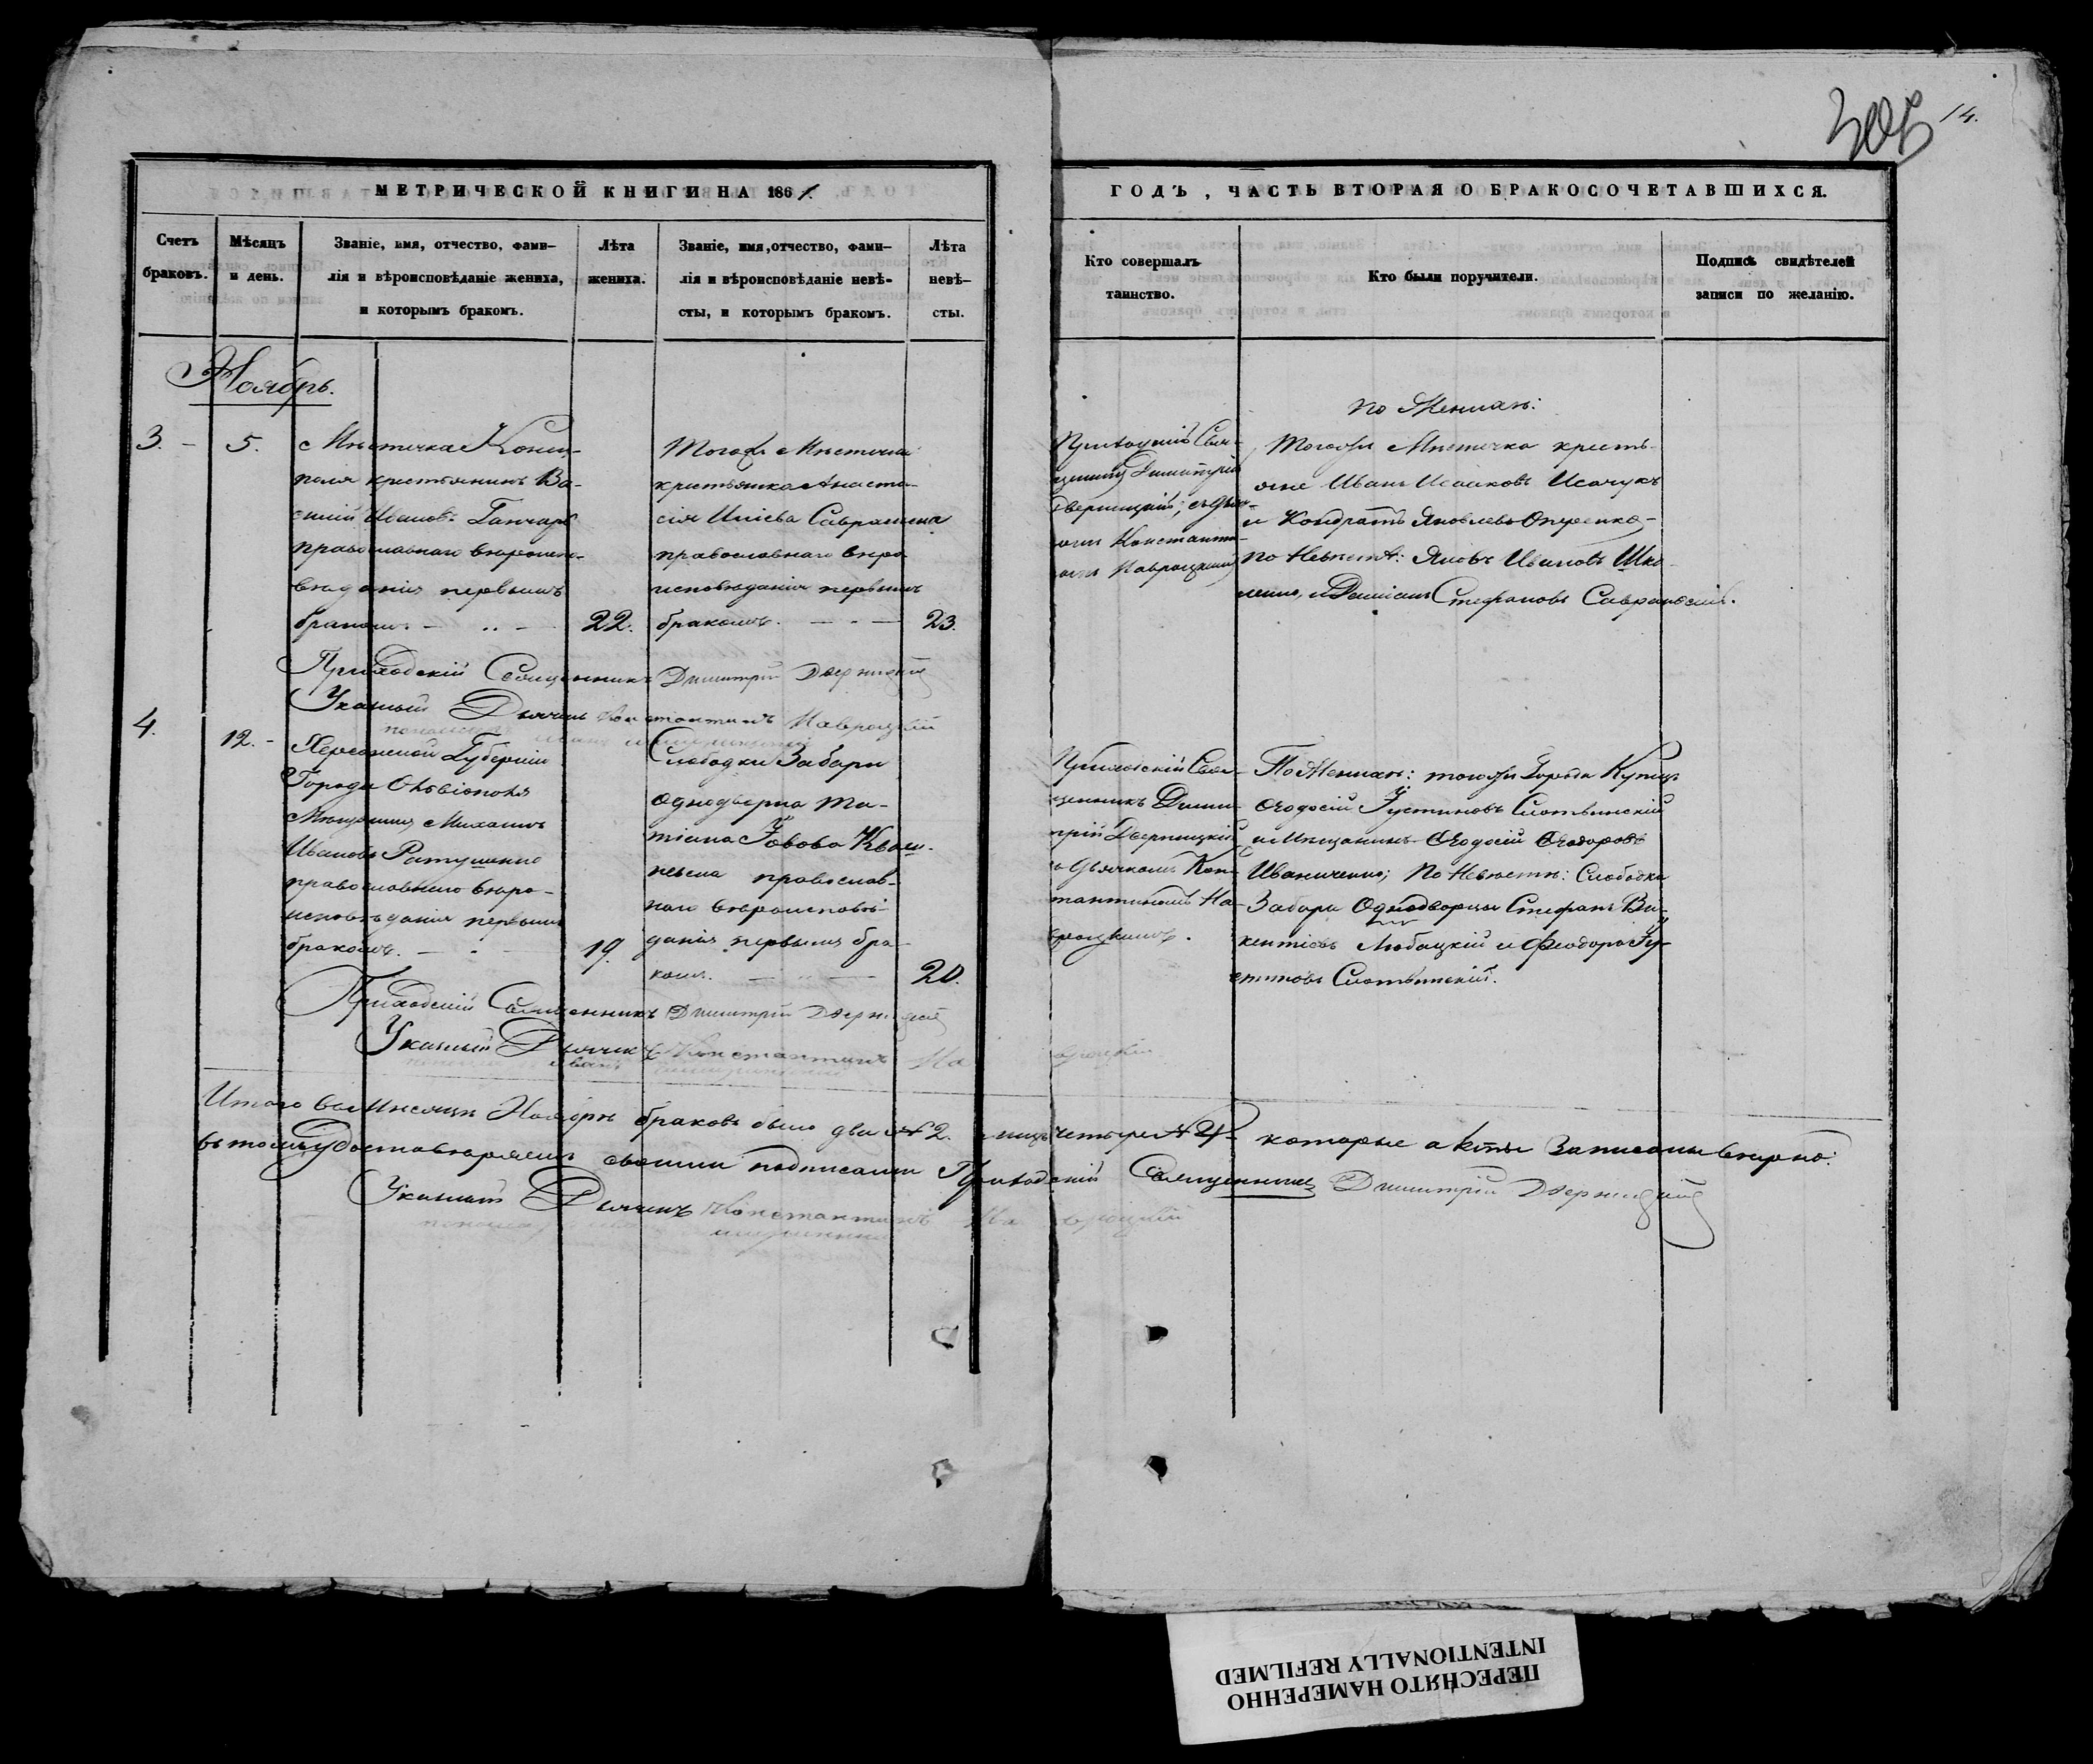 14.
МЕТРИЧЕСКОЙ КНИГИ НА 1861.
ГОДЪ, ЧАСТЬ ВТОРАЯ О БРАКОСОЧЕТАВШИХСЯ.
Счетъ
браковъ.
Мѣсяцъ
и день.
Званіе, имя, отчество, фами-
лія и вѣроисповѣданіе жениха,
и которымъ бракомъ.
Лѣта
жениха.
Званіе, имя, отчество, фами-
лія и вѣроисповѣданіе невѣ-
сты, и которымъ бракомъ.
Лѣта
невѣ-
сты.
Кто совершалъ
таинство.
Кто были поручители.
Подпись свидѣтелей
записи по желанію.
Ноябрь.
3.
5.
Мѣстечка Кониц-
поля крестьянинъ Ва-
силій Ивановъ Ганчаръ
православнаго вѣроиспо-
вѣданія первымъ
бракомъ.
22.
Тогожъ Мѣстечка
крестьянка Анаста-
сія
православнаго вѣро
исповѣданія первымъ
бракомъ.
23.
Приходскій Свя-
щенникъ Димитрій
Дверницкій; съ Дьяч-
комъ Константи-
номъ Навроцкимъ
по Женихѣ:
Тогожъ Мѣстечка кресть-
яне Иванъ Исааковъ Исачукъ
и Кондратъ Яковлевъ
по Невѣстѣ: Яковъ Ивановъ
и Даміанъ Стефановъ Савранскій.
Приходскій Священникъ Димитрій Дверницкій
Указный Дьячекъ Константинъ Навроцкій
4.
12.
Херсонской Губерніи
Города Ольвіополя
Мѣщанинъ Михаилъ
Ивановъ Ратушенко
православнаго вѣро-
исповѣданія первымъ
бракомъ.
19.
Слободки Забары
однодворка Та-
тіана Іовова
православ-
наго вѣроисповѣ-
данія первымъ бра-
комъ.
20.
Приходскій Свя-
щенникъ Дими-
трій Дверницкій
съ Дьячкомъ Конс-
тантиномъ На-
вроцкимъ.
По Женихѣ: тогожъ Города Купецъ
Ѳеодосій Іустиновъ Слотвинскій
и Мѣщанинъ Ѳеодосій Ѳеодоровъ
Иваниченко; По Невѣстѣ: Слободки
Забары Однодворцы Стефанъ Ви-
кентіевъ Любацкій и Феодоръ Іу-
стиновъ Слотвинскій.
Приходскій Священникъ Димитрій Дверницкій
Указный Дьячекъ Константинъ Навроцкій
Итого въ Мѣсяцѣ Ноябрѣ браковъ было два № 2. лицъ четыре № 4. которые акты записаны вѣрно.
въ томъ удостовѣряемъ своими подписами Приходскій Священникъ Димитрій Дверницкій
Указный Дьячекъ Константинъ Навроцкій
ПЕРЕСНЯТО НАМЕРЕННО
INTENTIONALLY REFILMED